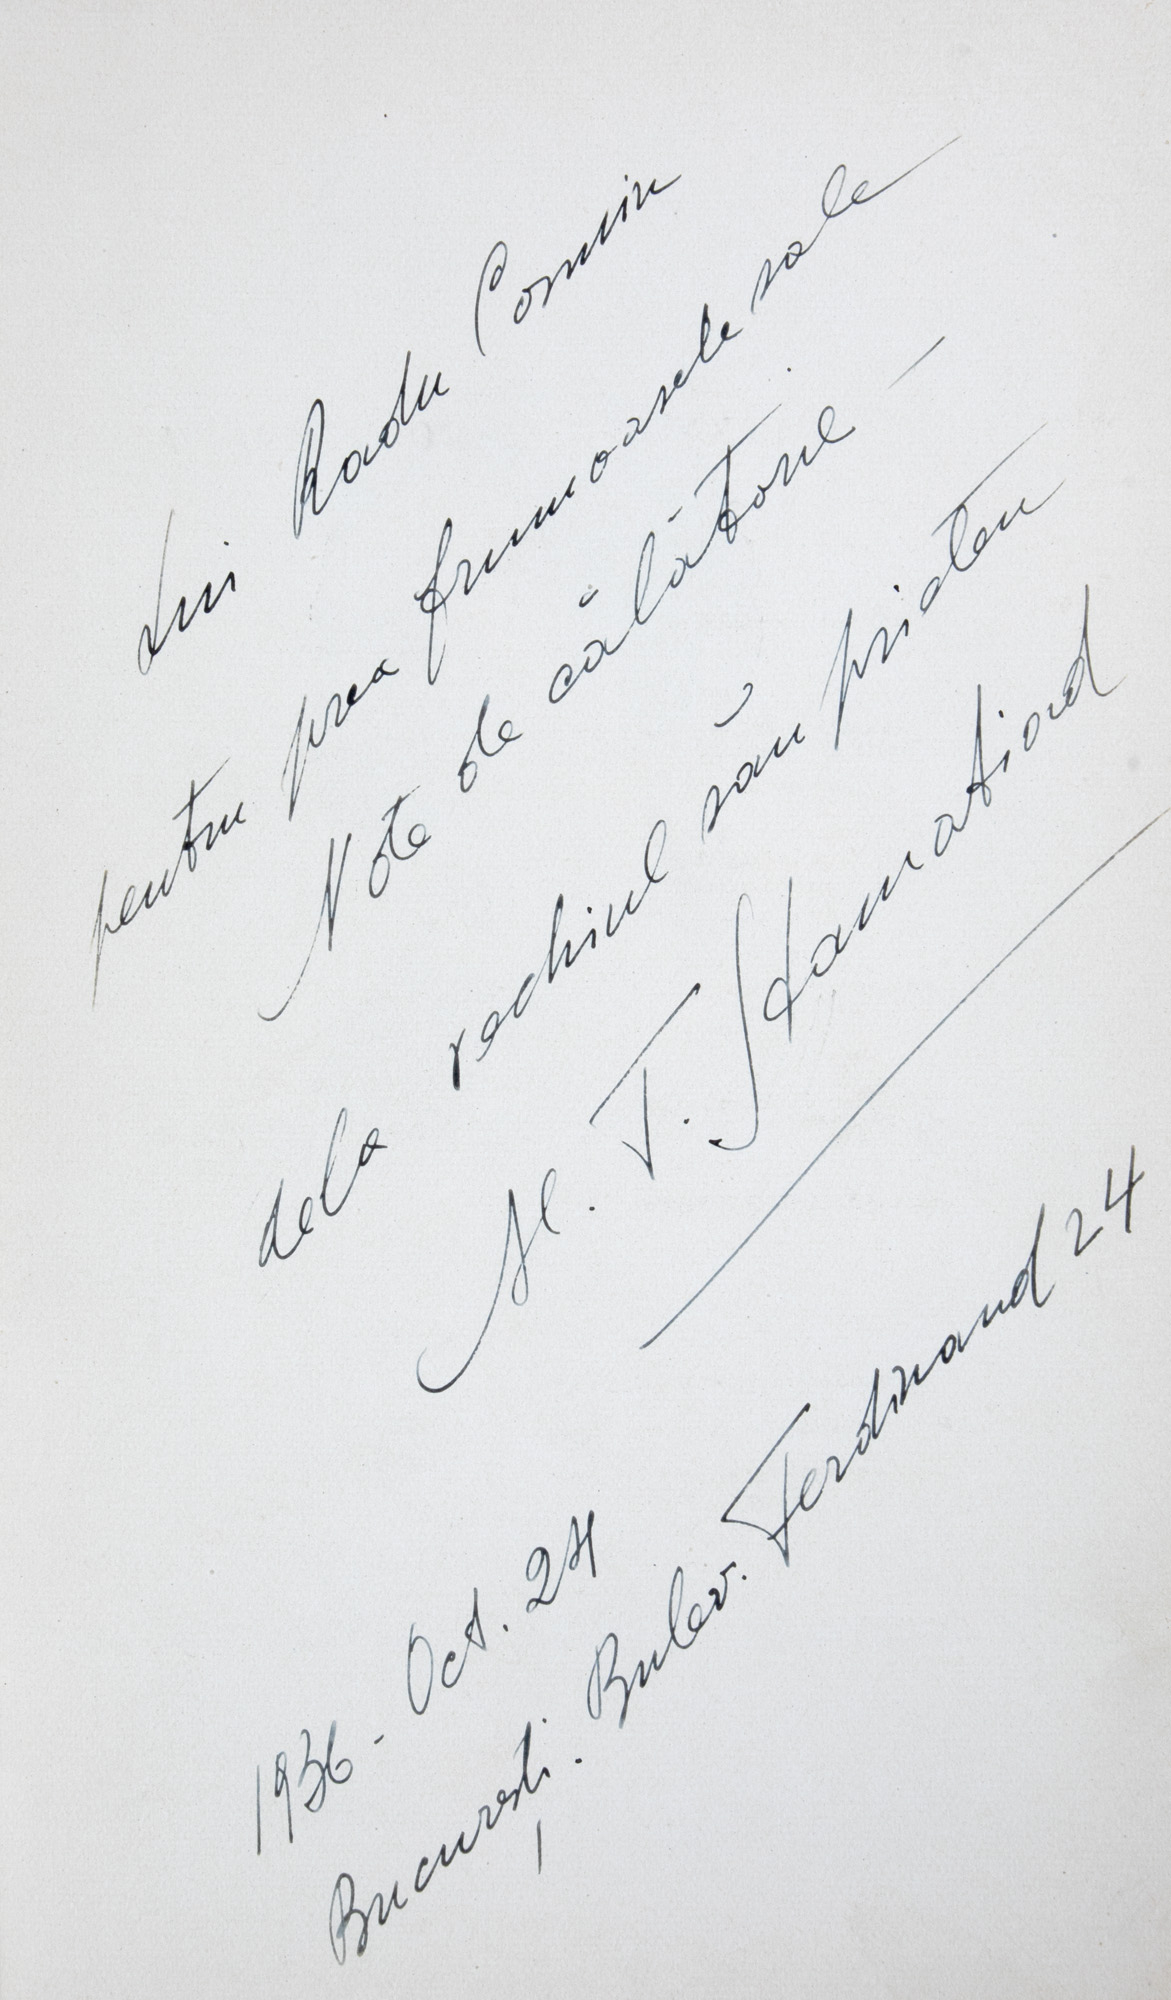 Lui Radu Cosmin
pentru prea frumoasele sale
Note de călătorie —
dela vechiul său prieten
Al. T. Stamatiad
1936 - Oct. 24
București. Bulev. Ferdinand 24